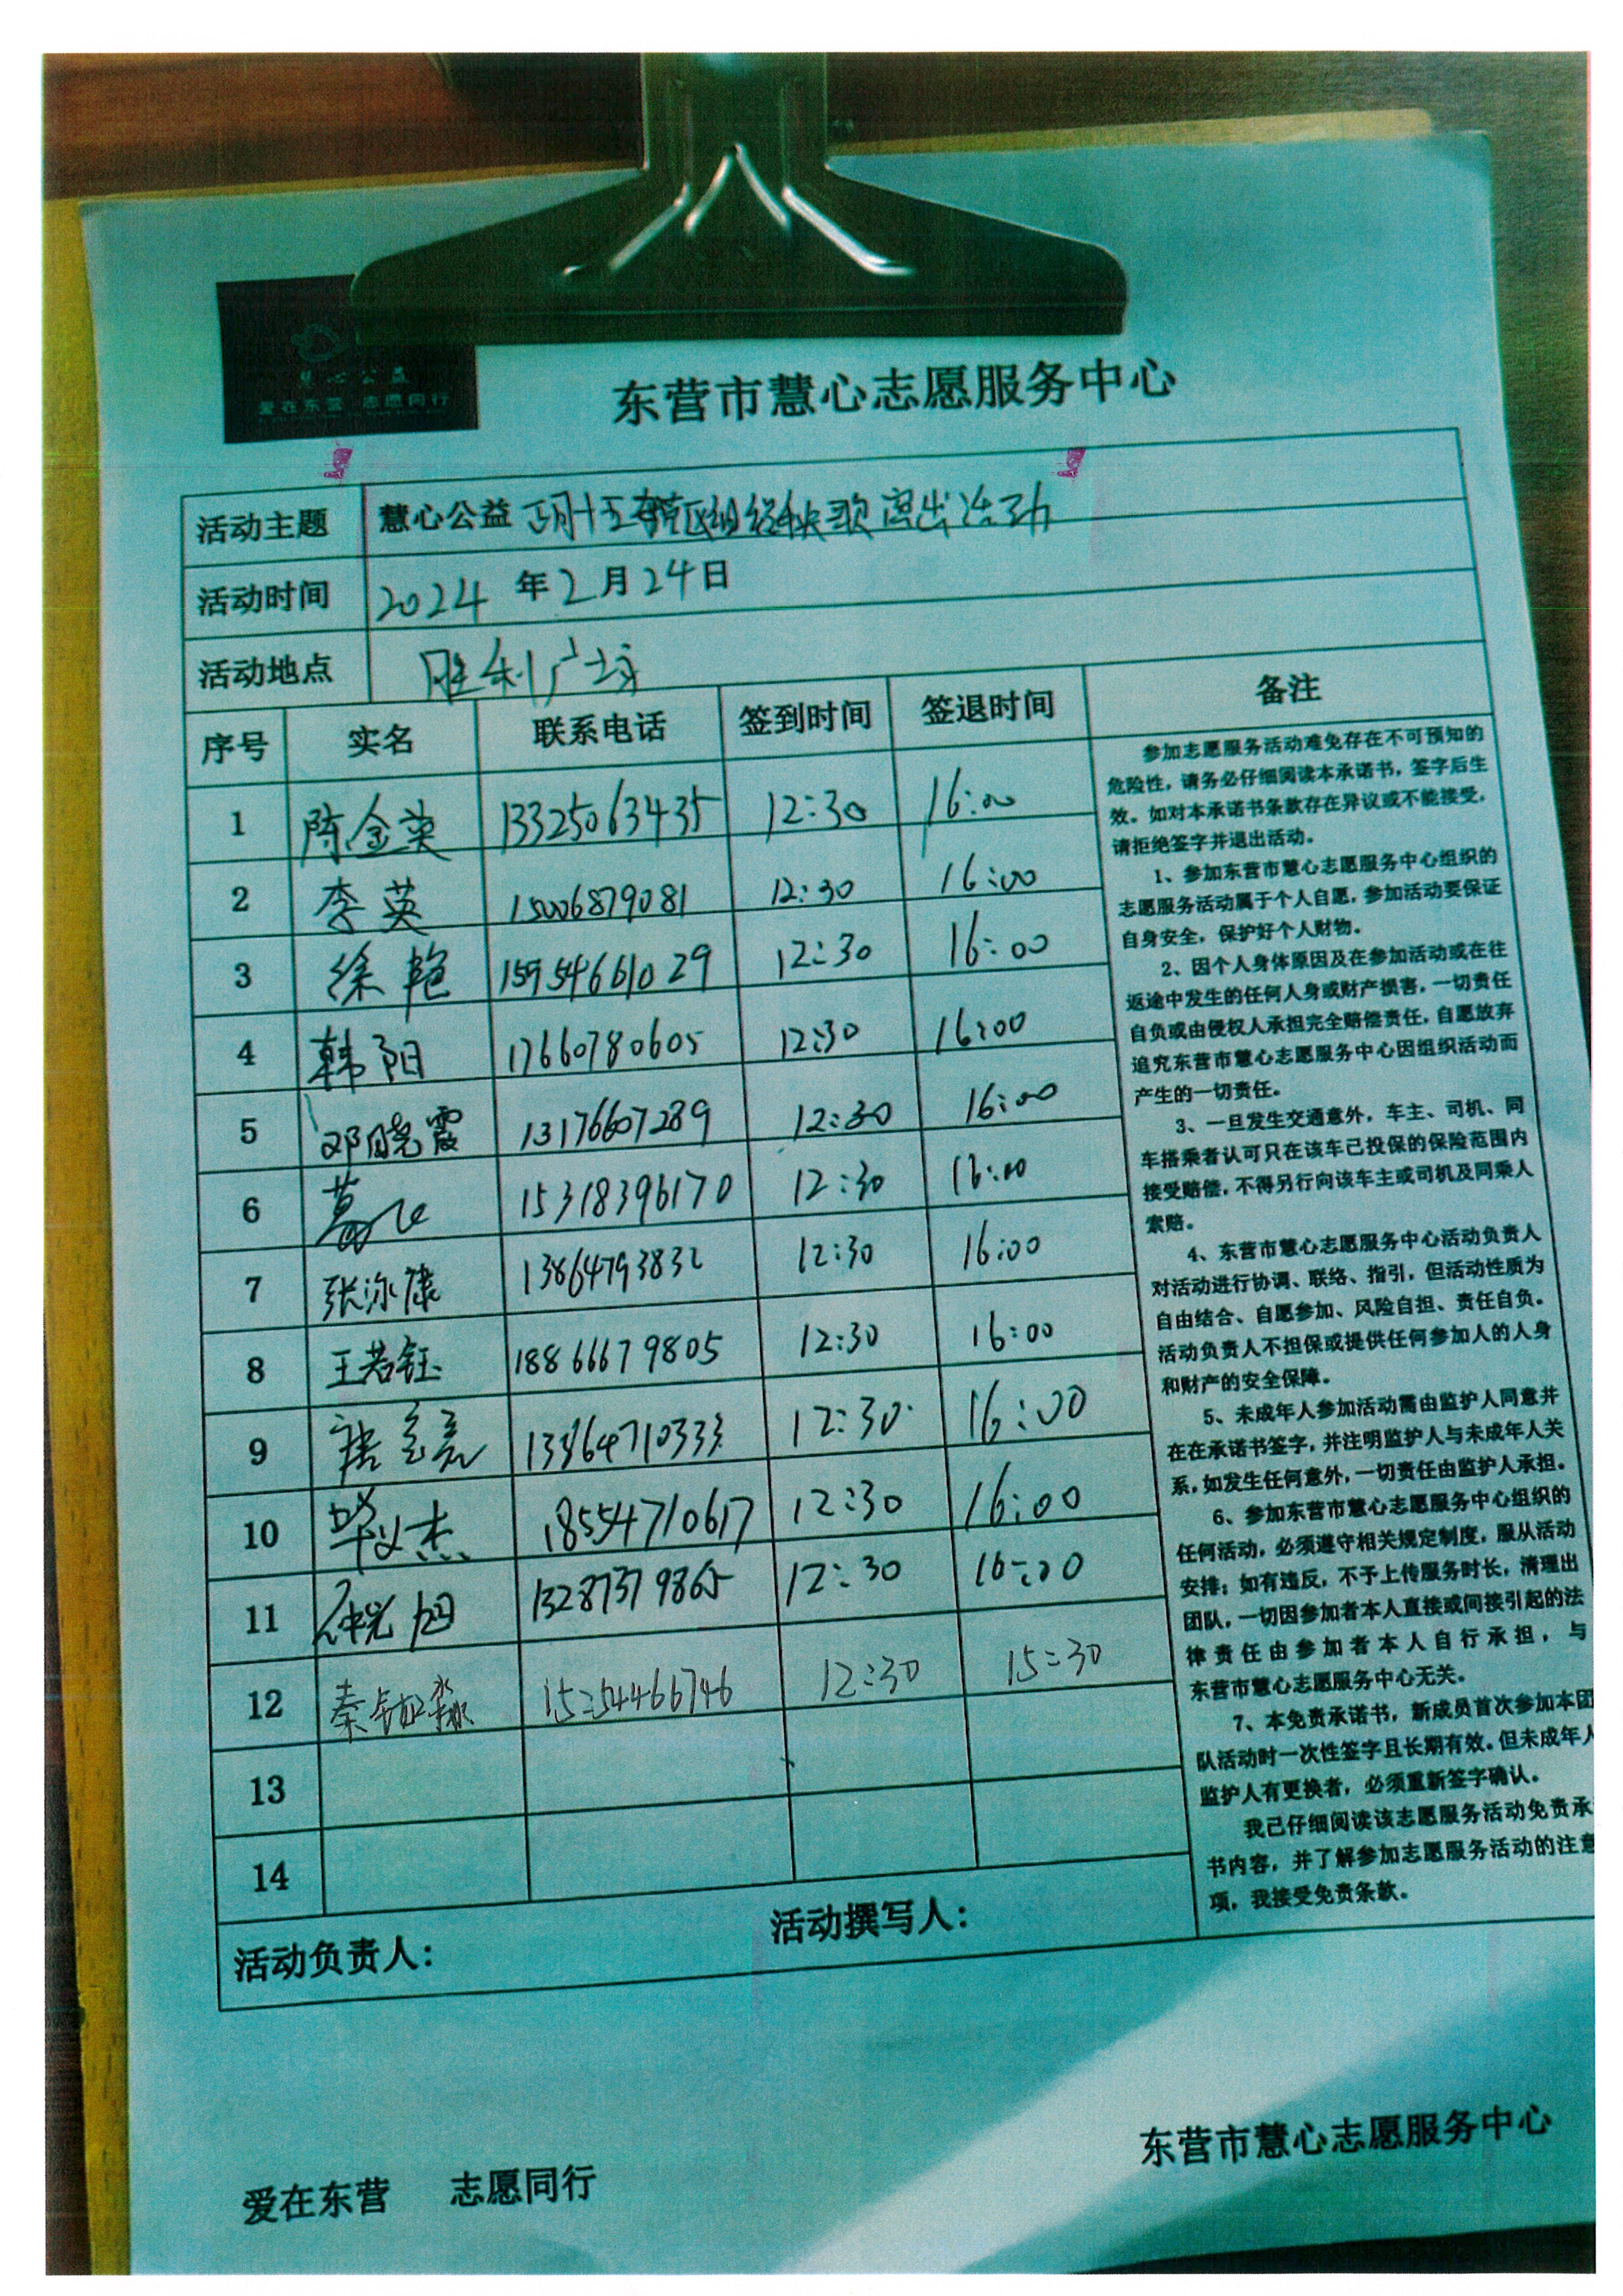 慧心公益
爱在东营 志愿同行
东营市慧心志愿服务中心
活动主题 慧心公益 正月十五 秧歌演出活动
活动时间 2024 年 2 月 24 日
活动地点 胜利广场
序号 实名 联系电话 签到时间 签退时间 备注
1 陈金英 13325063435 12:30 16:00
2 李英 15006879081 12:30 16:00
3 徐艳 15954661029 12:30 16:00
4 韩阳 17660780605 12:30 16:00
5 邓晓霞 13176607289 12:30 16:00
6 15318396170 12:30 16:00
7 张泳康 13864793832 12:30 16:00
8 王若钰 18866679805 12:30 16:00
9 12:30 16:00
10 毕义杰 18554710617 12:30 16:00
11 13287379865 12:30 16:00
12 秦 淼 12:30 15:30
13
14
参加志愿服务活动难免存在不可预知的
危险性，请务必仔细阅读本承诺书，签字后生
效。如对本承诺书条款存在异议或不能接受，
请拒绝签字并退出活动。
1、参加东营市慧心志愿服务中心组织的
志愿服务活动属于个人自愿，参加活动要保证
自身安全，保护好个人财物。
2、因个人身体原因及在参加活动或在往
返途中发生的任何人身或财产损害，一切责任
自负或由侵权人承担完全赔偿责任，自愿放弃
追究东营市慧心志愿服务中心因组织活动而
产生的一切责任。
3、一旦发生交通意外，车主、司机、同
车搭乘者认可只在该车已投保的保险范围内
接受赔偿，不得另行向该车主或司机及同乘人
索赔。
4、东营市慧心志愿服务中心活动负责人
对活动进行协调、联络、指引，但活动性质为
自由结合、自愿参加、风险自担、责任自负。
活动负责人不担保或提供任何参加人的人身
和财产的安全保障。
5、未成年人参加活动需由监护人同意并
在在承诺书签字，并注明监护人与未成年人关
系，如发生任何意外，一切责任由监护人承担。
6、参加东营市慧心志愿服务中心组织的
任何活动，必须遵守相关规定制度，服从活动
安排；如有违反，不予上传服务时长，清理出
团队，一切因参加者本人直接或间接引起的法
律责任由参加者本人自行承担，与
东营市慧心志愿服务中心无关。
7、本免责承诺书，新成员首次参加本团
队活动时一次性签字且长期有效。但未成年人
监护人有更换者，必须重新签字确认。
我已仔细阅读该志愿服务活动免责承
书内容，并了解参加志愿服务活动的注意
项，我接受免责条款。
活动负责人： 活动撰写人：
东营市慧心志愿服务中心
爱在东营 志愿同行